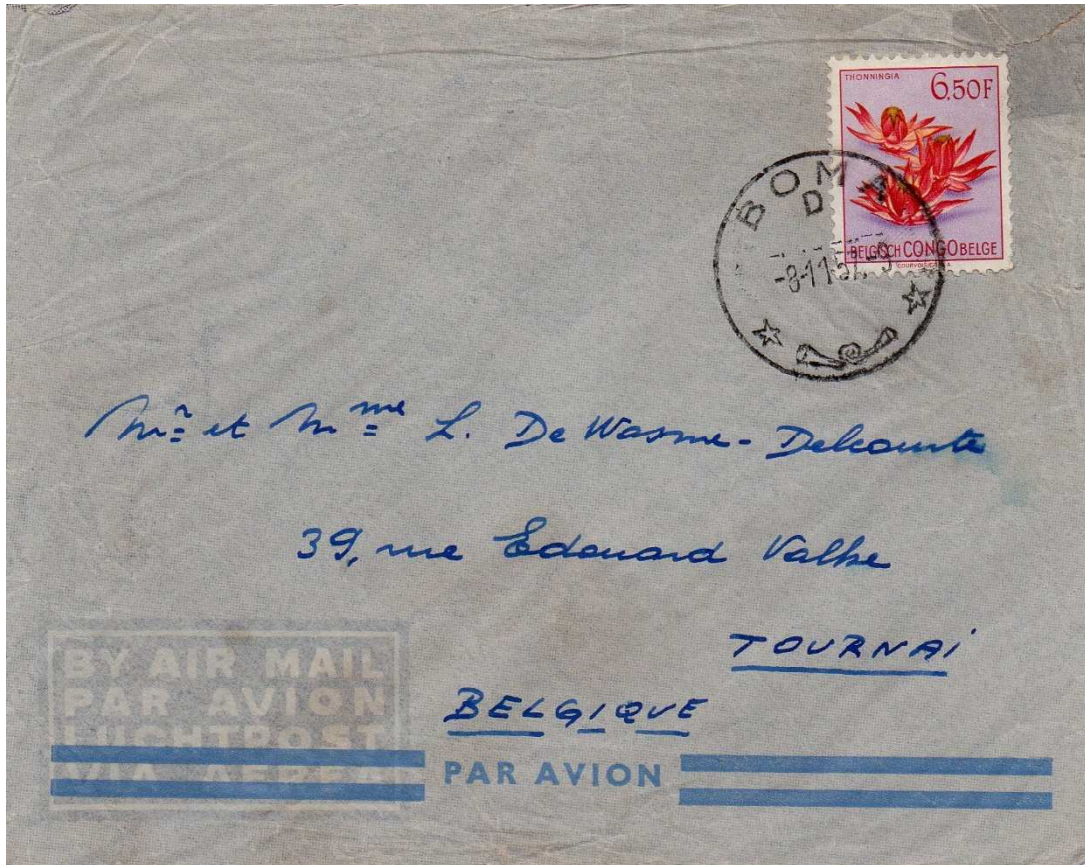 THONNINGIA
6.50F
BELGISCH CONGO BELGE
COURVOISIER S.A.
BOMA
D
-8-11-57-9
Mr et Mme L. De Wasme-Delcourte
39, rue Edouard Valke
TOURNAI
BELGIQUE
BY AIR MAIL
PAR AVION
LUCHTPOST
VIA AEREA
PAR AVION